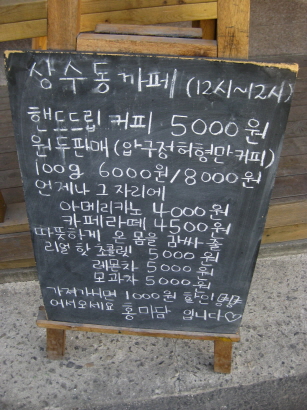 상수동까페 (12시~12시)
핸드드립 커피 5000원
원두판매 (압구정허형만커피)
100g 6000원/8000원
언제나 그 자리에
아메리카노 4000원
카페라떼 4500원
따뜻하게 온 몸을 감싸 줄
리얼 핫 초콜릿 5000원
레몬차 5000원
모과차 5000원
가져가시면 1000원 할인
어서오세요 홍미담 입니다♡